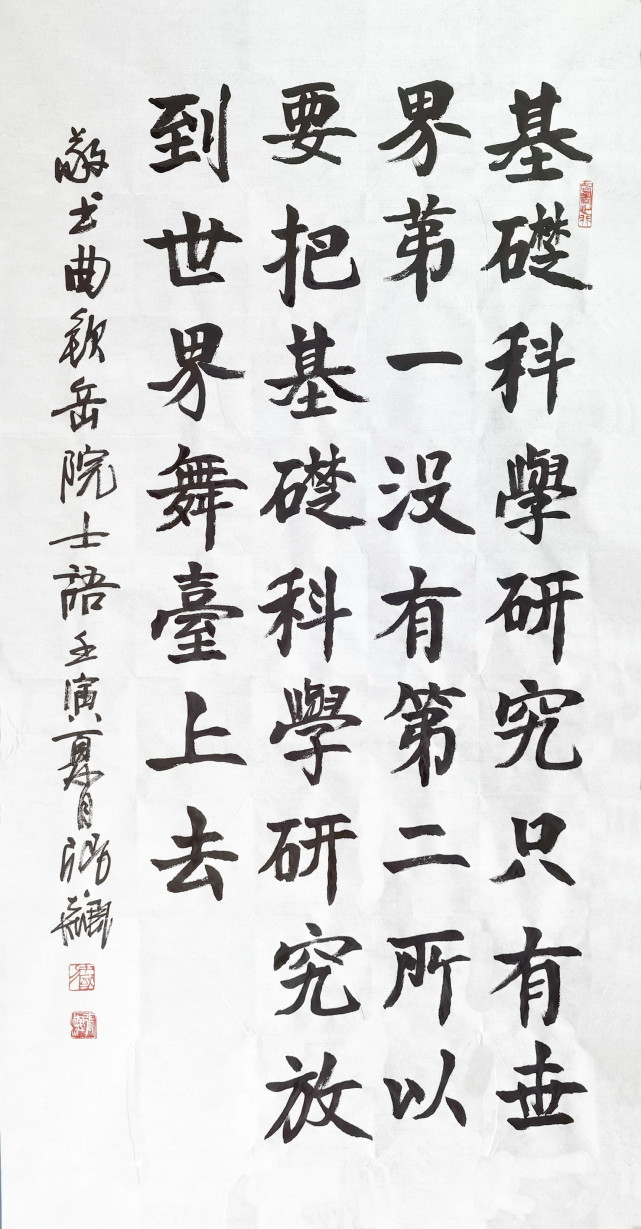 基礎科學研究只有世
界第一没有第二所以
要把基礎科學研究放
到世界舞臺上去
敬书曲钦岳院士語壬寅夏月